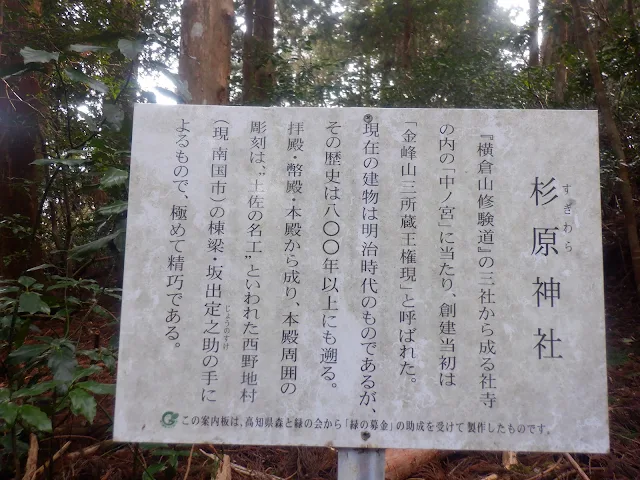 すぎわら
杉原神社
『横倉山修験道』の三社から成る社寺
の内の「中ノ宮」に当たり、創建当初は
「金峰山三所蔵王権現」と呼ばれた。
現在の建物は明治時代のものであるが、
その歴史は八〇〇年以上にも遡る。
拝殿・幣殿・本殿から成り、本殿周囲の
彫刻は、〝土佐の名工〟といわれた西野地村
(現 南国市)の棟梁・坂出定之助の手に
じょうのすけ
よるもので、極めて精巧である。
この案内板は、高知県森と緑の会から「緑の募金」の助成を受けて製作したものです。